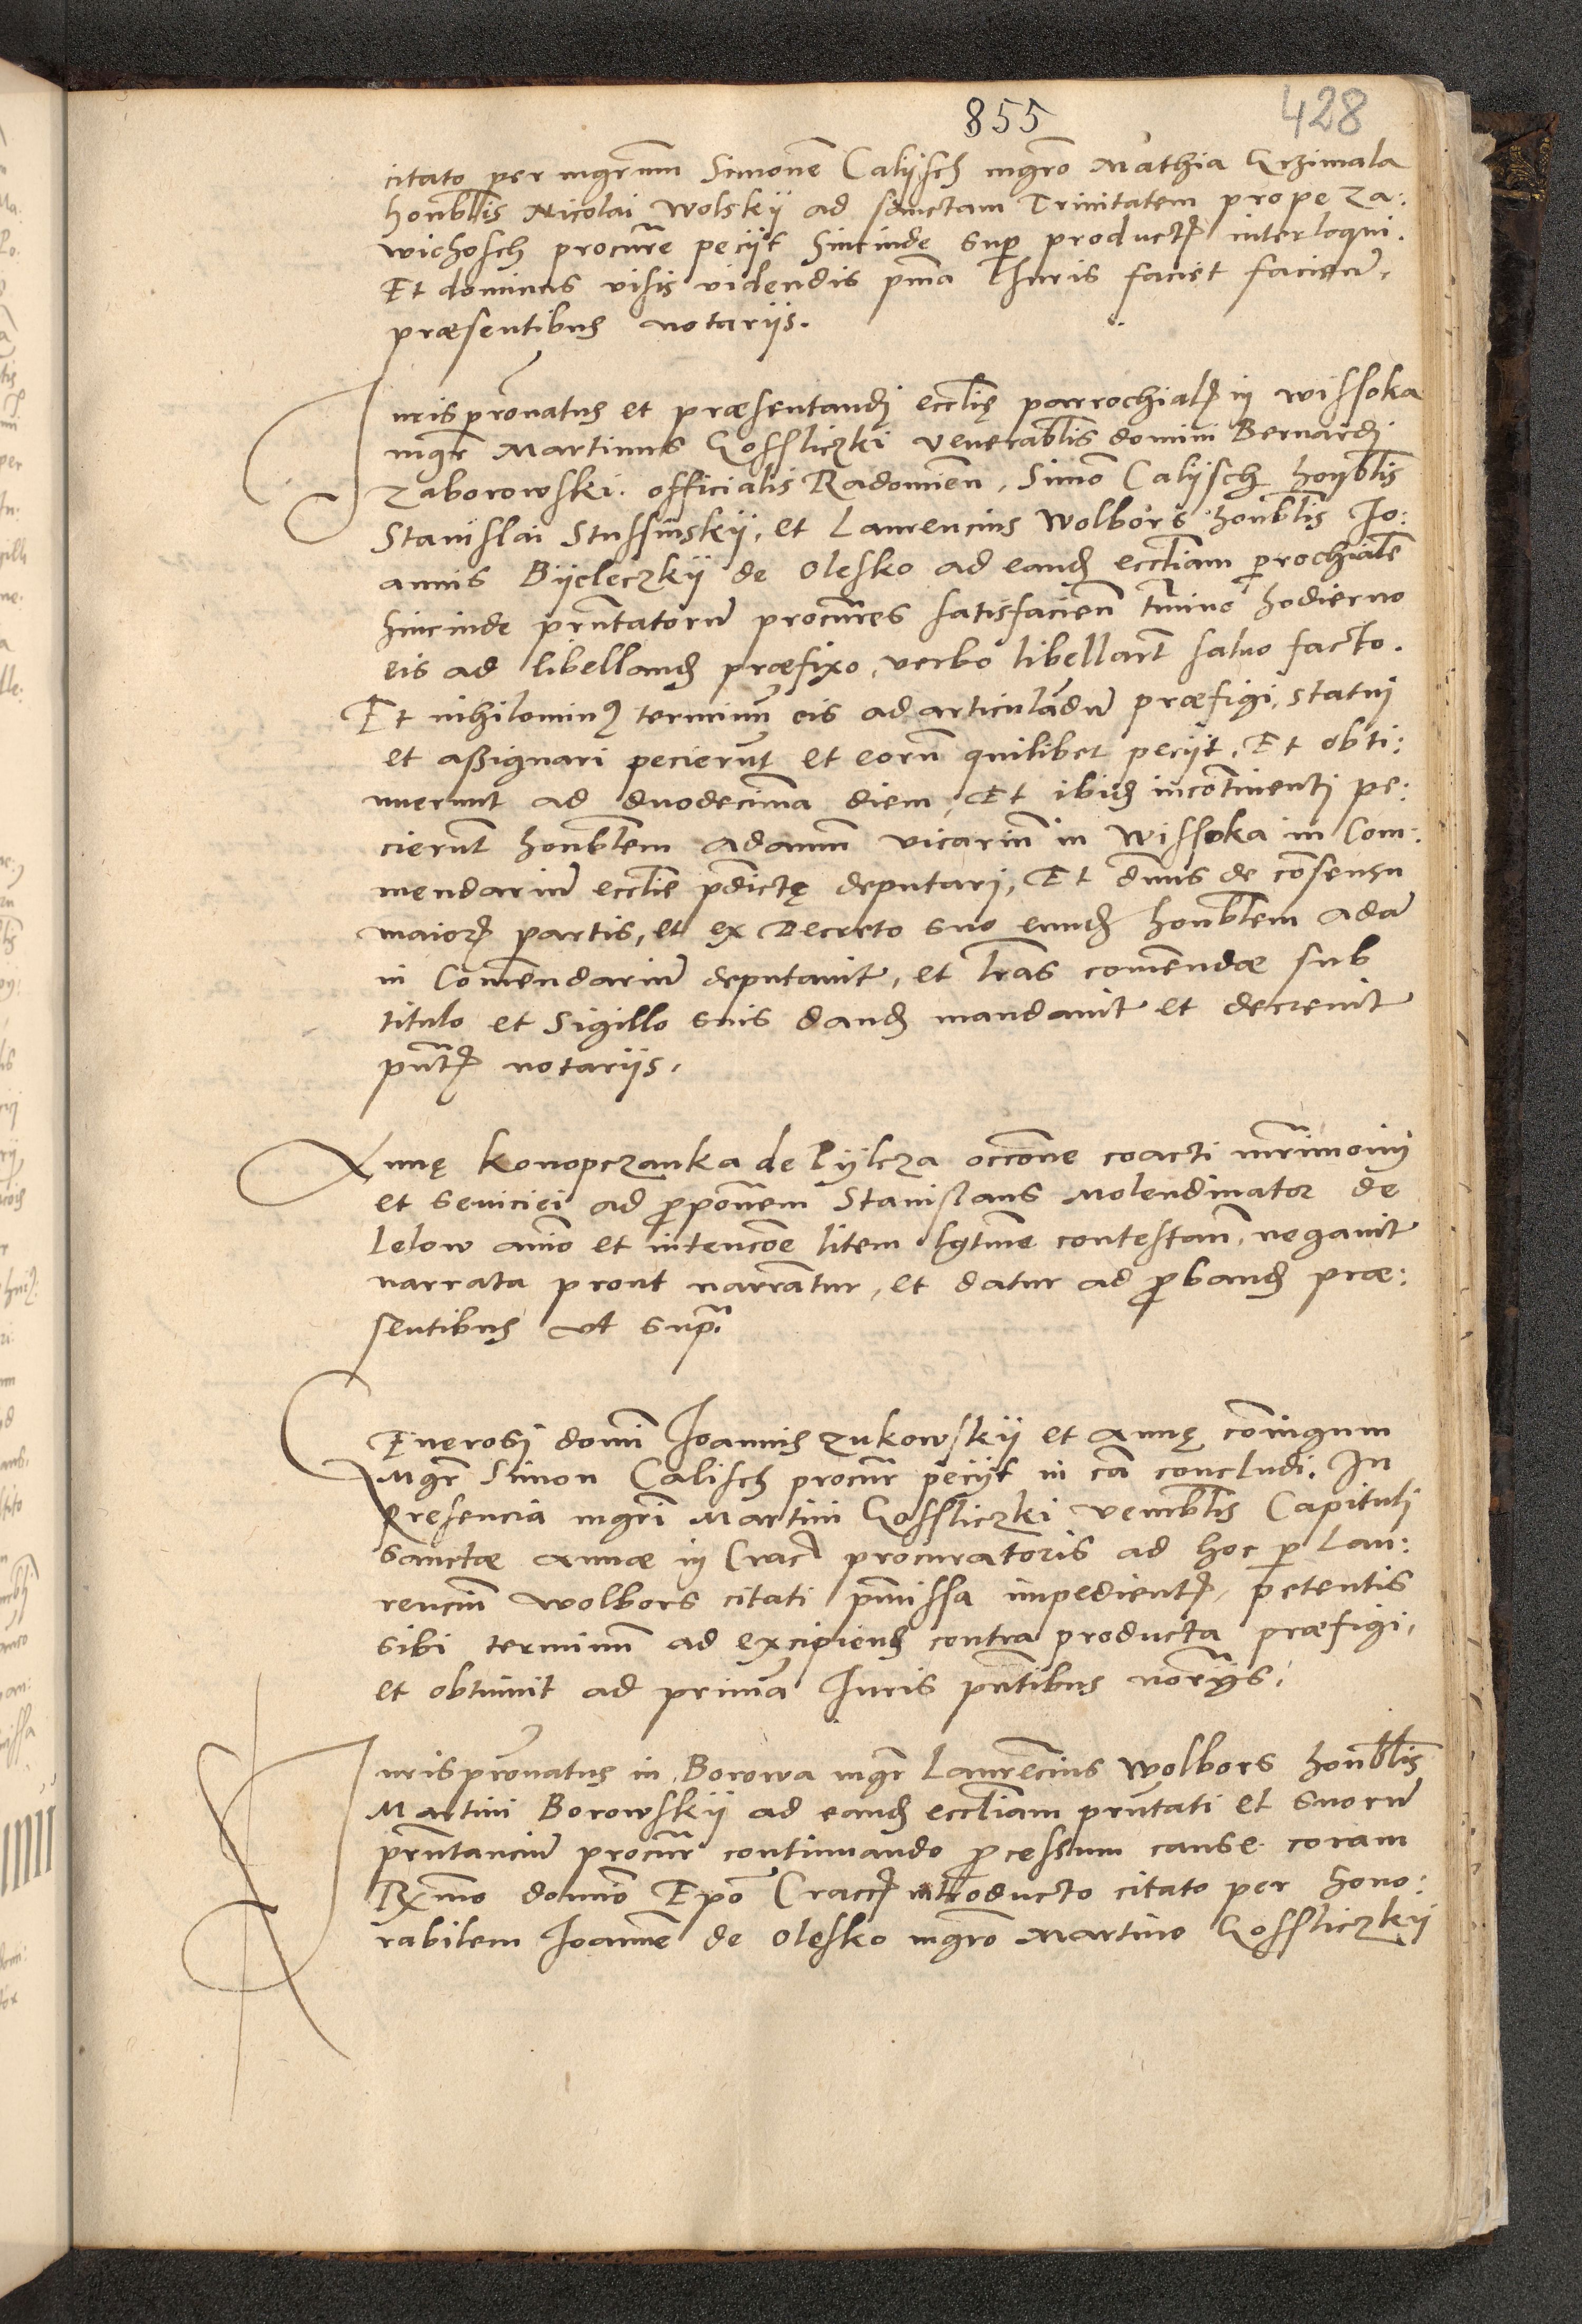 855 428
citato per mgrum Simonē Calijsch mgrō Mathia Grzimala
honblis Nicolai Wolskij ad sanctam Trinitatem prope Za:
wichosch procurē peciit hincinde sup productꝭ interloqui.
Et dominus visis videndis pma Iuris faciet faciend,
præsentibus notariis.
Iurispronatus et præsentandj ecclię parrochialꝭ in Wissoka
mgr Martinus Gossliczki venerablis domini Bernardj
Zaborowski officialis Radomien, Simō Calijsch honblis
Stanislai Stussinskij, et Laurencius Wolbors honblis Jo:
annis Bijeleczkij de Olesko ad eandē eccliam prochialē
hincinde prntatorū procures satisfacien tmino hodierno
eis ad libelland præfixo, verbo libellarūt saluo facto.
Et nihilominꝰ terminū eis ad articulandū præfigi, statuj
et assignari pecierūt et eorū quilibet peciit, Et obti:
nuerunt ad duodecima diem, Et ibidē incōtinentj pe:
cierūt honblem Adamū vicariū in Wissoka in Com:
mendariū ecclie pdictę deputari, Et dnus de cōsensu
maiorꝭ partis, et ex Decreto suo eundē honblem Adā
in Comendariū deputauit, et lras comendæ sub
titulo et Sigillo suis dand mandauit et decreuit
pntꝭ notariis.
Annę Konopczanka de Pijlcza occone coacti mrimonij
et seuiciei ad ꝓponem Stanislaus Molendinator de
Lelow aīo et intencōe litem lgtime contestan, negauit
narrata prout narrantur, et datur ad ꝓband præ:
sentibus vt supra.
Generosj domi Joannis Zukowskij et Annę coniugum
Mgr Simon Calisch procur peciit in ca concludi. In
Presencia mgri Martini Gossliczki venrablis Capitulj
Sanctæ Annæ in Crac procuratoris ad hoc p Lau:
renciū Wolbors citati pmissa impedientꝭ, petentis
sibi terminū ad excipiend contra producta præfigi,
et obtinuit ad primā Iuris pntibus noriis.
Iurispronatus in Borowa mgr Laurēcius Wolbors honblis
Martini Borowskij ad eandē eccliam prntati et suorū
prntanciū procur continuando ꝓcessum cause coram
Rmo domio Epō Cracꝭ introducto citato per hono:
rabilem Joannē de Olesko mgrō Martino Gossliczkij